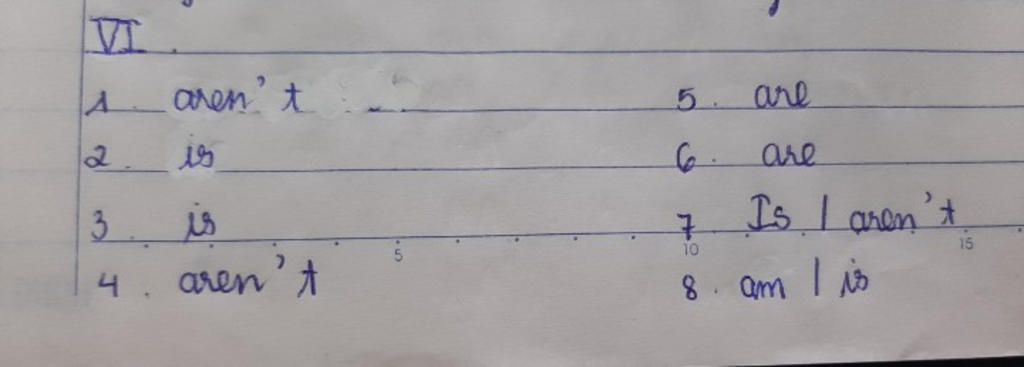 VI.
1. aren't
2. is
3. is
4. aren't
5. are
6. are
7 Is / aren't
8. am / is
5
10
15